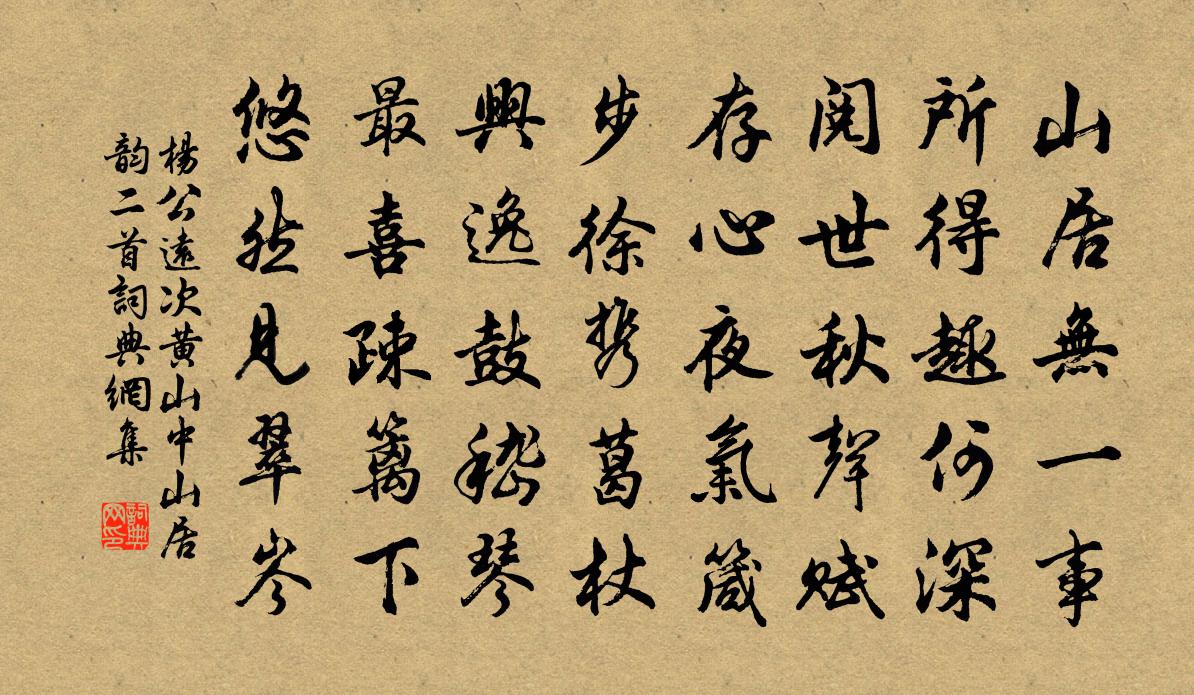 山居無一事
所得趣何深
閱世秋聲賦
存心夜氣箴
步徐携葛杖
興逸鼓嵇琴
最喜疎篱下
悠然見翠岑
楊公遠次黃山中山居
韵二首詞典網集
詞典網印